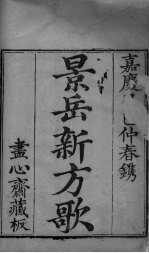 嘉慶仲春鐫
景岳新方歌
盡心齋藏板